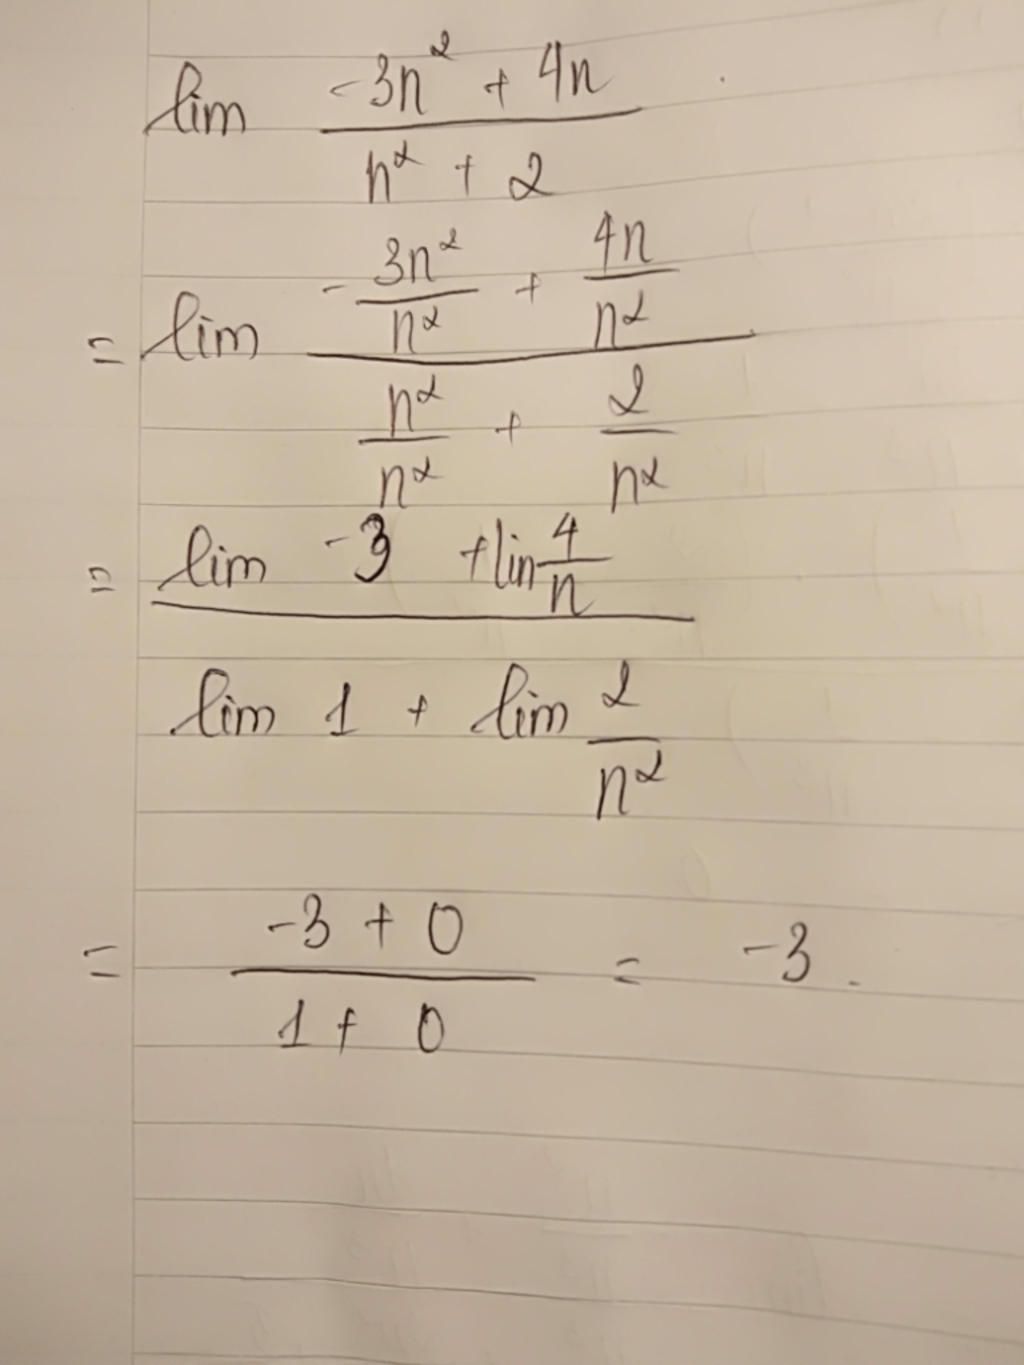 lim (-3n² + 4n) / (n² + 2)
= lim (-3n²/n² + 4n/n²) / (n²/n² + 2/n²)
= (lim -3 + lin 4/n) / (lim 1 + lim 2/n²)
= (-3 + 0) / (1 + 0) = -3.